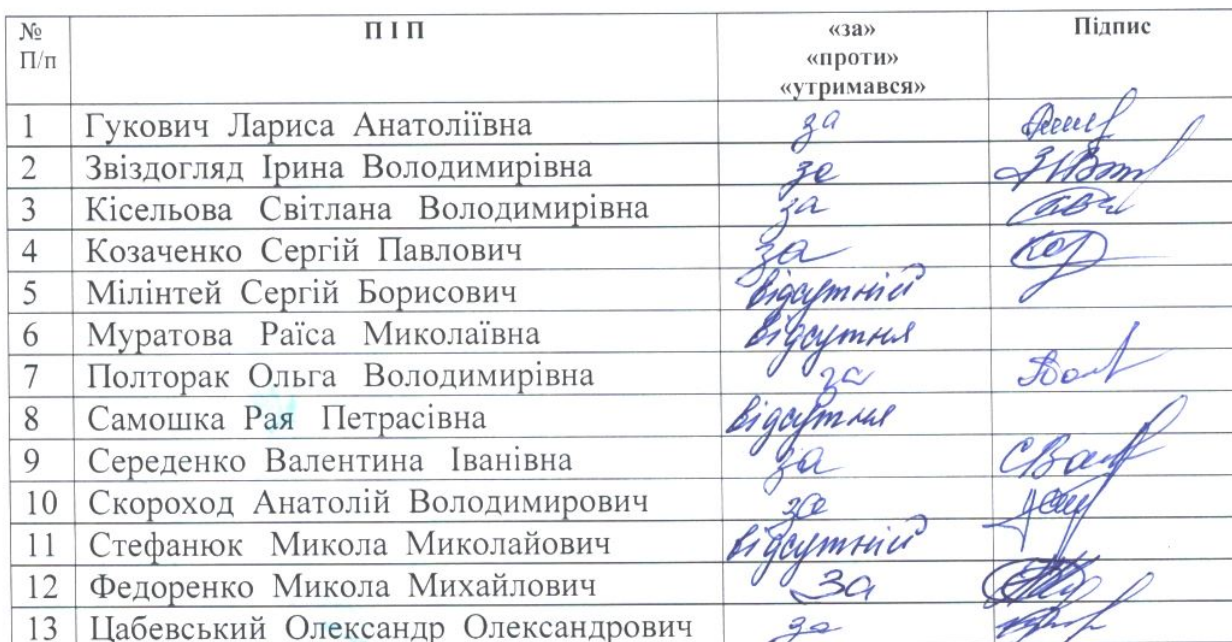 № П/п П І П «за» «проти» «утримався» Підпис
1 Гукович Лариса Анатоліївна за
2 Звіздогляд Ірина Володимирівна за
3 Кісельова Світлана Володимирівна за
4 Козаченко Сергій Павлович за
5 Мілінтей Сергій Борисович відсутній
6 Муратова Раїса Миколаївна відсутня
7 Полторак Ольга Володимирівна за
8 Самошка Рая Петрасівна відсутня
9 Середенко Валентина Іванівна за
10 Скороход Анатолій Володимирович за
11 Стефанюк Микола Миколайович відсутній
12 Федоренко Микола Михайлович За
13 Цабевський Олександр Олександрович за